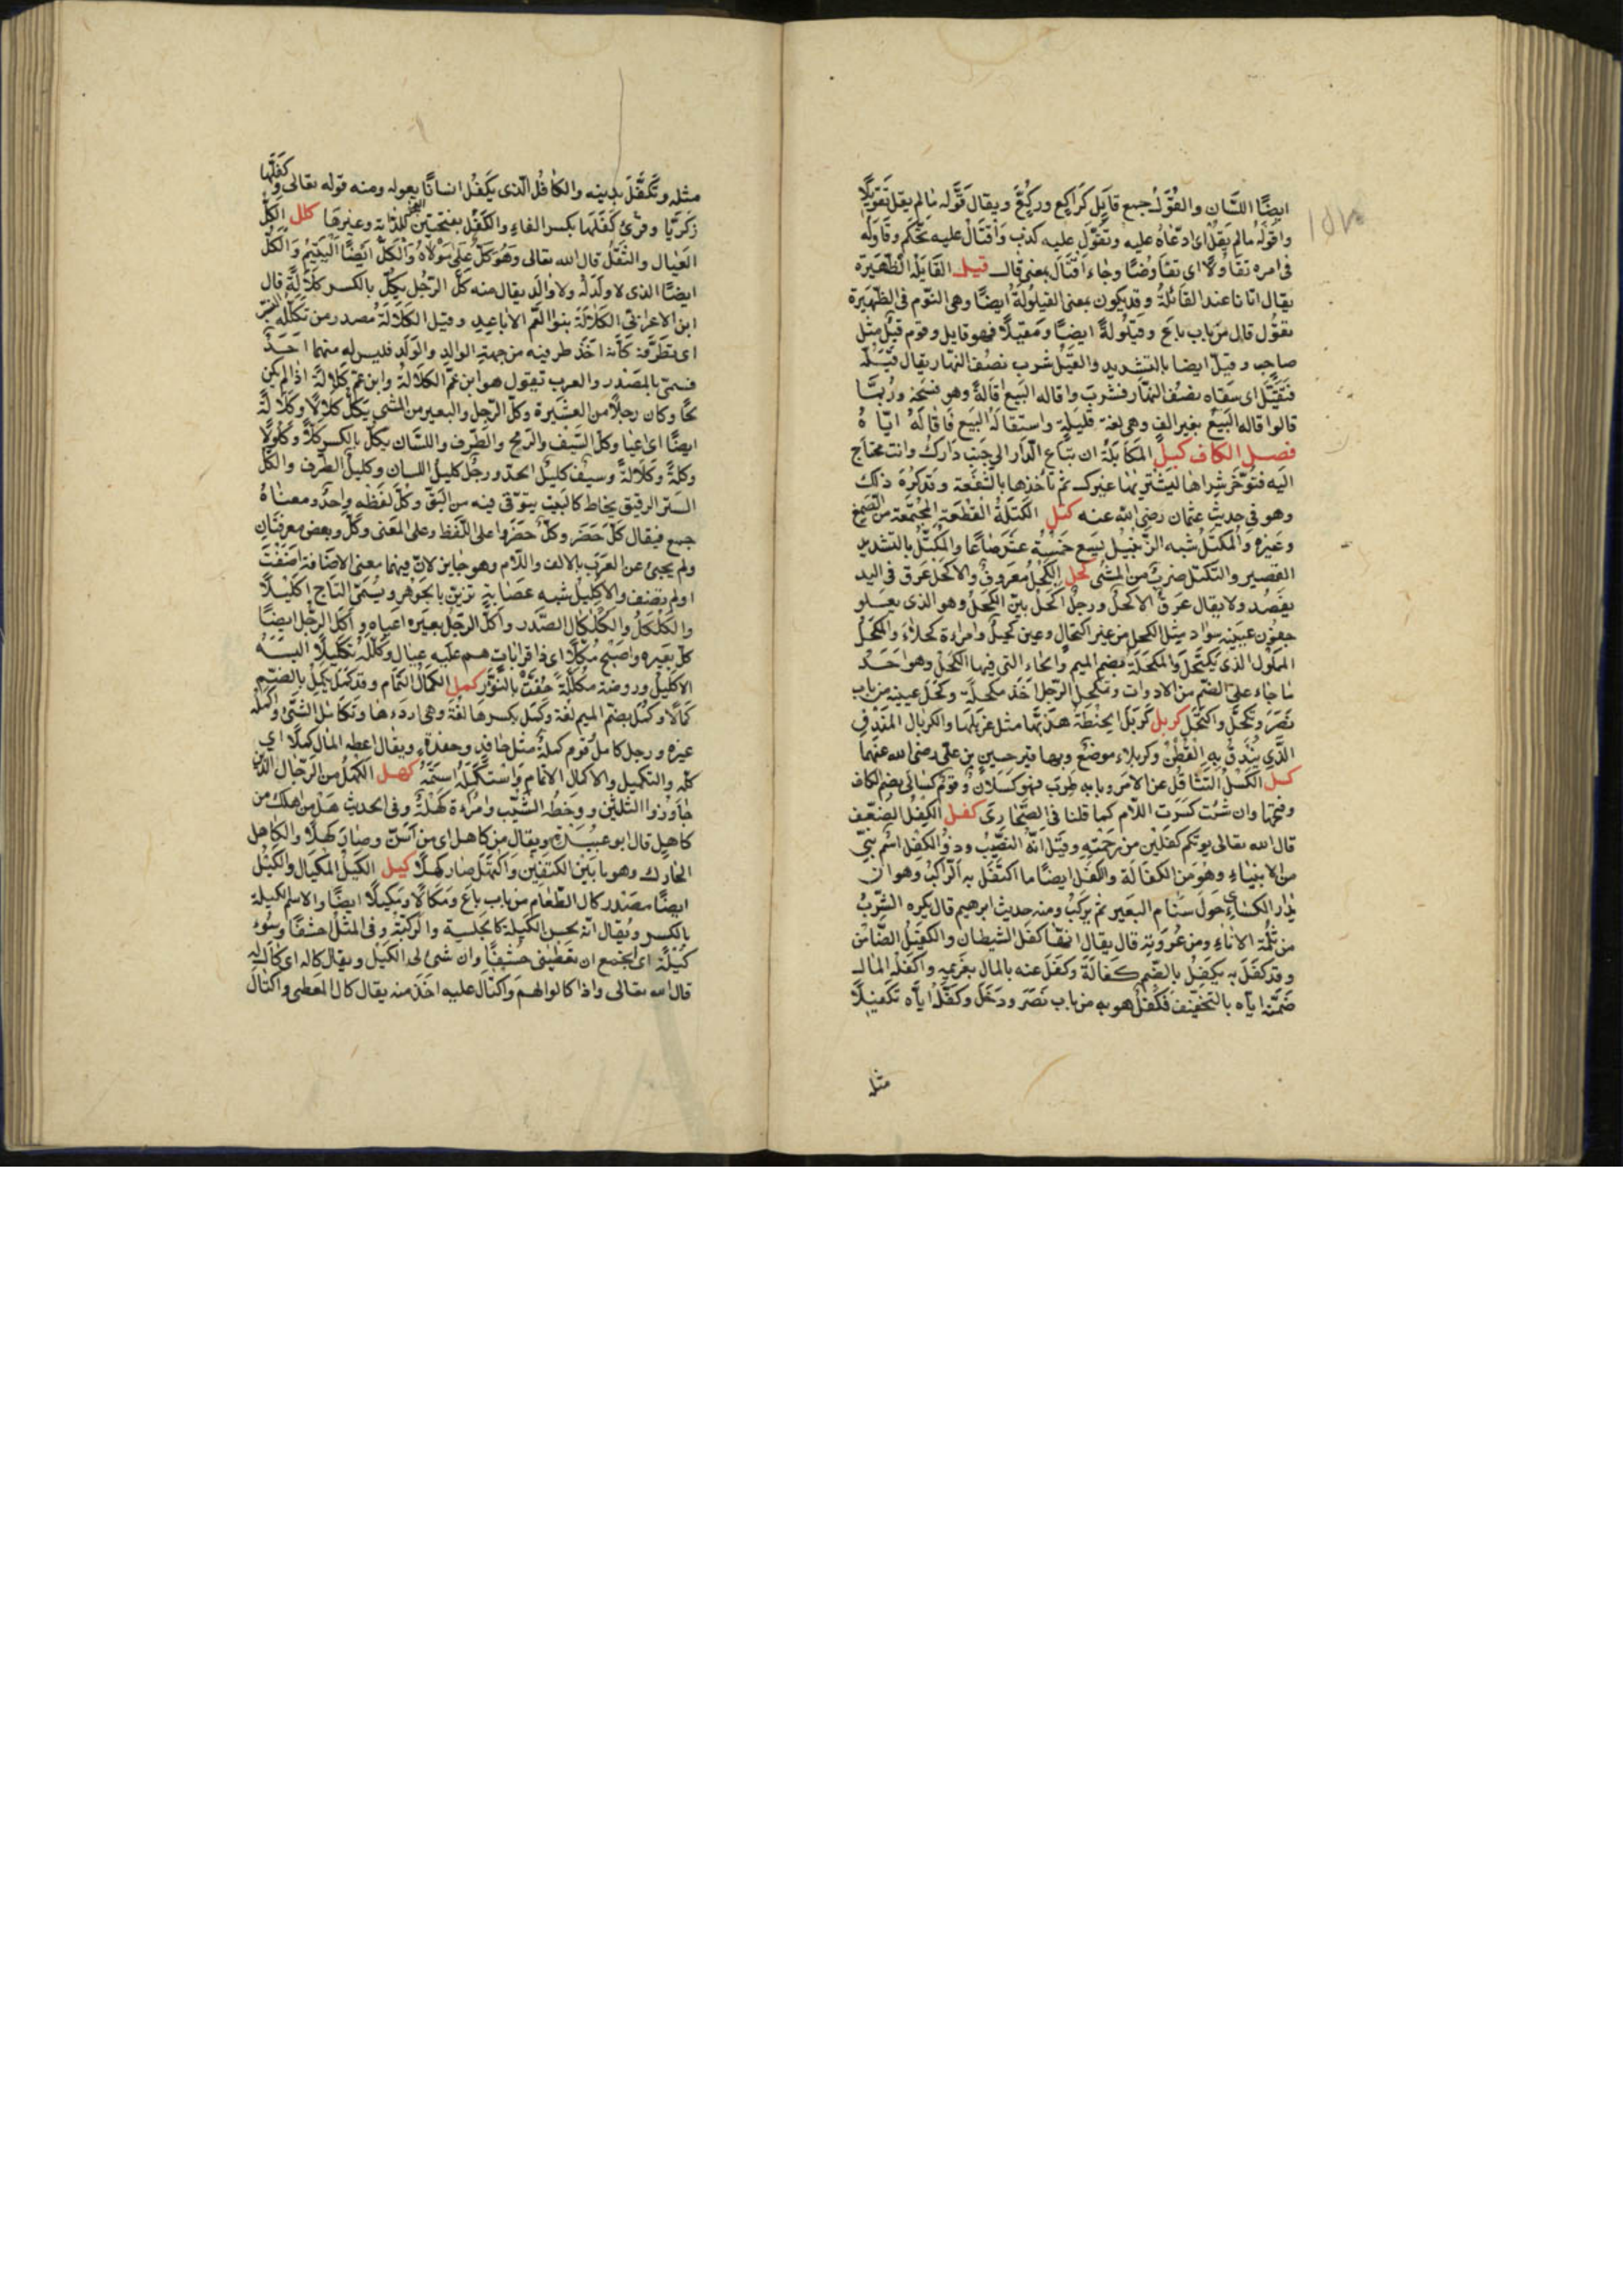 ايضًا اللسان والقُوَّلُ جمع قايل كراكع وركّع ويقال قَوَّله مالم يقل تقويلًا
واقوله مالم يقل اى ادّعاه عليه وتقوّل عليه كذب واقتال عليه تحكّم وقاوله
فى امره تقاولا اى تفاوضا وجاء اقتال بمعنى قال قيل القايلة الظهيرة
يقال اتانا عند القائلة وقد يكون بمعنى القيلولة ايضا وهى النوم فى الظهيرة
تقول قال من باب باع وقيلولة ايضا ومقيلا فهو قايل وقوم قيل مثل
صاحب وقيّل ايضا بالتشديد والقيل شرب نصف النهار يقال قيّله
فتقيّل اى سقاه نصف النهار فشرب واقاله البيع اقالة وهو فسخه وربما
قالوا قاله البيع بغير الف وهى لغة قليلة واستقاله البيع فاقاله ايّاه
فصل الكاف كبل المكابلة ان تباع الدار الى جنب دارك وانت محتاج
اليه فتؤخر شراها ليشتريها غيرك ثم تاخذها بالشفعة وقد كره ذلك
وهو فى حديث عثمان رضى الله عنه كتل الكتلة القطعة المجتمعة من الصمغ
وغيره والمكتل شبه الزنبيل يسع خمسة عشر صاعا والمكتل بالتشديد
القصير والتكتل ضرب من المشى كحل الكحل معروف والاكحل عرق فى اليد
يفصد ولا يقال عرق الاكحل ورجل اكحل بين الكحل وهو الذى يعلو
جفون عينيه سواد مثل الكحل من غير اكتحال وعين كحيل وامراة كحلاء والمكحل
الملول الذى يكتحل والمكحلة بضم الميم والحاء التى فيها الكحل وهو احد
ما جاء على الضم من الادوات وتمكحل الرجل اخذ مكحلة وكحل عينيه من باب
نصر وتكحل واكتحل كربل كربل الحنطة هذبها مثل غربلها والكربال المندف
الذى يندف به القطن وكربلاء موضع وبها قبر حسين بن على رضى الله عنهما
كسل الكسل التثاقل عن الامر وبابه طرب فهو كسلان وقوم كسالى بضم الكاف
وفتحها وان شئت كسرت اللام كما قلنا فى الصحارى كفل الكفل الضعف
قال الله تعالى يوتكم كفلين من رحمته وقيل انه النصيب وذو الكفل اسم نبى
من الانبياء وهو من الكفالة والكفل ايضا ما اكتفل به الراكب وهو ان
يدار الكساء حول سنام البعير ثم يركب ومنه حديث ابرهيم قال يكره الشرب
من ثلمة الاناء ومن عروته قال يقال انها كفل الشيطان والكفيل الضامن
وقد كفل به يكفل بالضم كفالة وكفل عنه بالمال بغريمه واكفله المال
ضمّنه اياه بالتخفيف فكفل هو به من باب نصر ودخل وكفّله اياه تكفيلا
مثل
مثله وتكفّل بدينه والكافل الذى يكفل انسانا يعوله ومنه قوله تعالى وكفلها
زكريا وقرئ كفلها بكسر الفاء والكفل بفتحتين للدابة وغيرها كلل الكلّ
العيال والثقل قال الله تعالى وهو كلّ على مولاه والكل ايضا اليتيم والكل
ايضا الذى لا ولد له ولا والد يقال منه كلّ الرجل يكل بالكسر كلالة قال
ابن الاعرابى الكلالة بنو العم الاباعد وقيل الكلالة مصدر من تكلله النسب
اى تطرّفه كأنه اخذ طرفيه من جهة الوالد والولد فليس له منهما احد
فسمى بالمصدر والعرب تقول هو ابن عم الكلالة وابن عم كلالة اذا لم يكن
لحّا وكان رجلا من العشيرة وكلّ الرجل والبعير من المشى يكلّ كلالا وكلالة
ايضا اى اعيا وكلّ السيف والرمح والطرف واللسان يكل بالكسر كلًّا وكلولا
وكلة وكلالة وسيف كليل الحد ورجل كليل اللسان وكليل الطرف والكلة
الستر الرقيق يخاط كالبيت يتوقى فيه من البق وكلّ لفظه واحد ومعناه
جمع فيقال كلّ حضر وكلّ حضروا على اللفظ وعلى المعنى وكل وبعض معرفتان
ولم يجئ عن العرب بالالف واللام وهو جايز لانّ فيهما معنى الاضافة اضفت
او لم تضف والاكليل شبه عصابة تزين بالجوهر ويسمى التاج اكليلا
والكلكل والكلكال الصدر واكلّ الرجل بعيره اعياه واكل الرجل ايضا
كلّ بعيره واصبح مكلّا اى ذا قرابات هم عليه عيال وكلله تكليلا البسه
الاكليل وروضة مكللة حفت بالنور كمل الكمال التمام وقد كمل يكمل بالضم
كمالا وكمل بضم الميم لغة وكمل بكسرها لغة وهى اردءها وتكامل الشئ واكمله
غيره ورجل كامل وقوم كملة مثل حافد وحفدة ويقال اعطه المال كملا اى
كله والتكميل والاكمال الاتمام واستكمله استتمه كهل الكهل من الرجال الذى
جاوز الثلثين ووخطه الشيب وامراة كهلة وفى الحديث هل من اهلك من
كاهل قال ابو عبيدة ويقال من كاهل اى من اسن وصار كهلا والكاهل
الحارك وهو ما بين الكتفين واكتهل صار كهلا كيل الكيل المكيال والكيل
ايضا مصدر كال الطعام من باب باع ومكالا ومكيلا ايضا والاسم الكيلة
بالكسر ويقال انه لحسن الكيلة كالجلسة والركبة وفى المثل احشفا وسوء
كيلة اى اتجمع ان تعطينى حشفا وان تسئ لى الكيل ويقال كاله اى كال له
قال الله تعالى واذا كالوهم واكتال عليه اخذ منه يقال كال المعطى واكتال